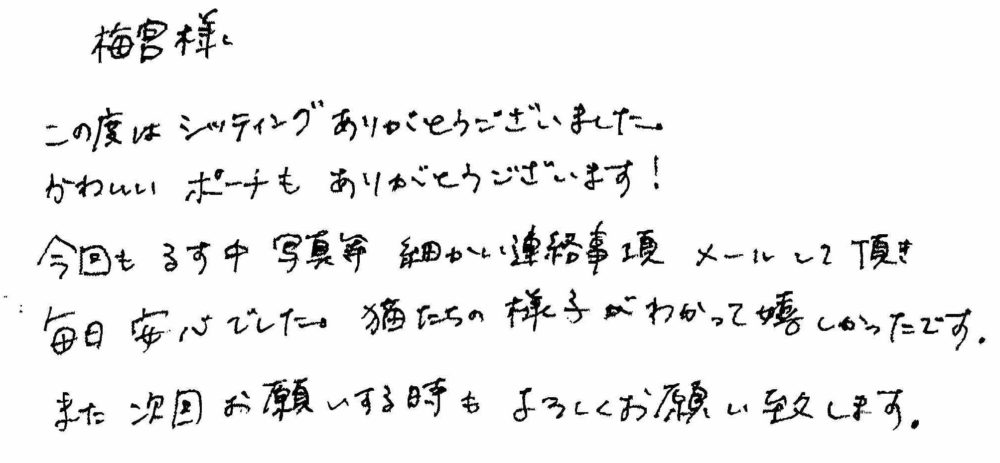 梅宮様
この度は シッティング ありがとうございました。
かわいい ポーチも ありがとうございます!
今回も るす中 写真等 細かい連絡事項 メールして頂き
毎日 安心でした。猫たちの 様子が わかって嬉しかったです。
また 次回 お願いする時も よろしくお願い致します。